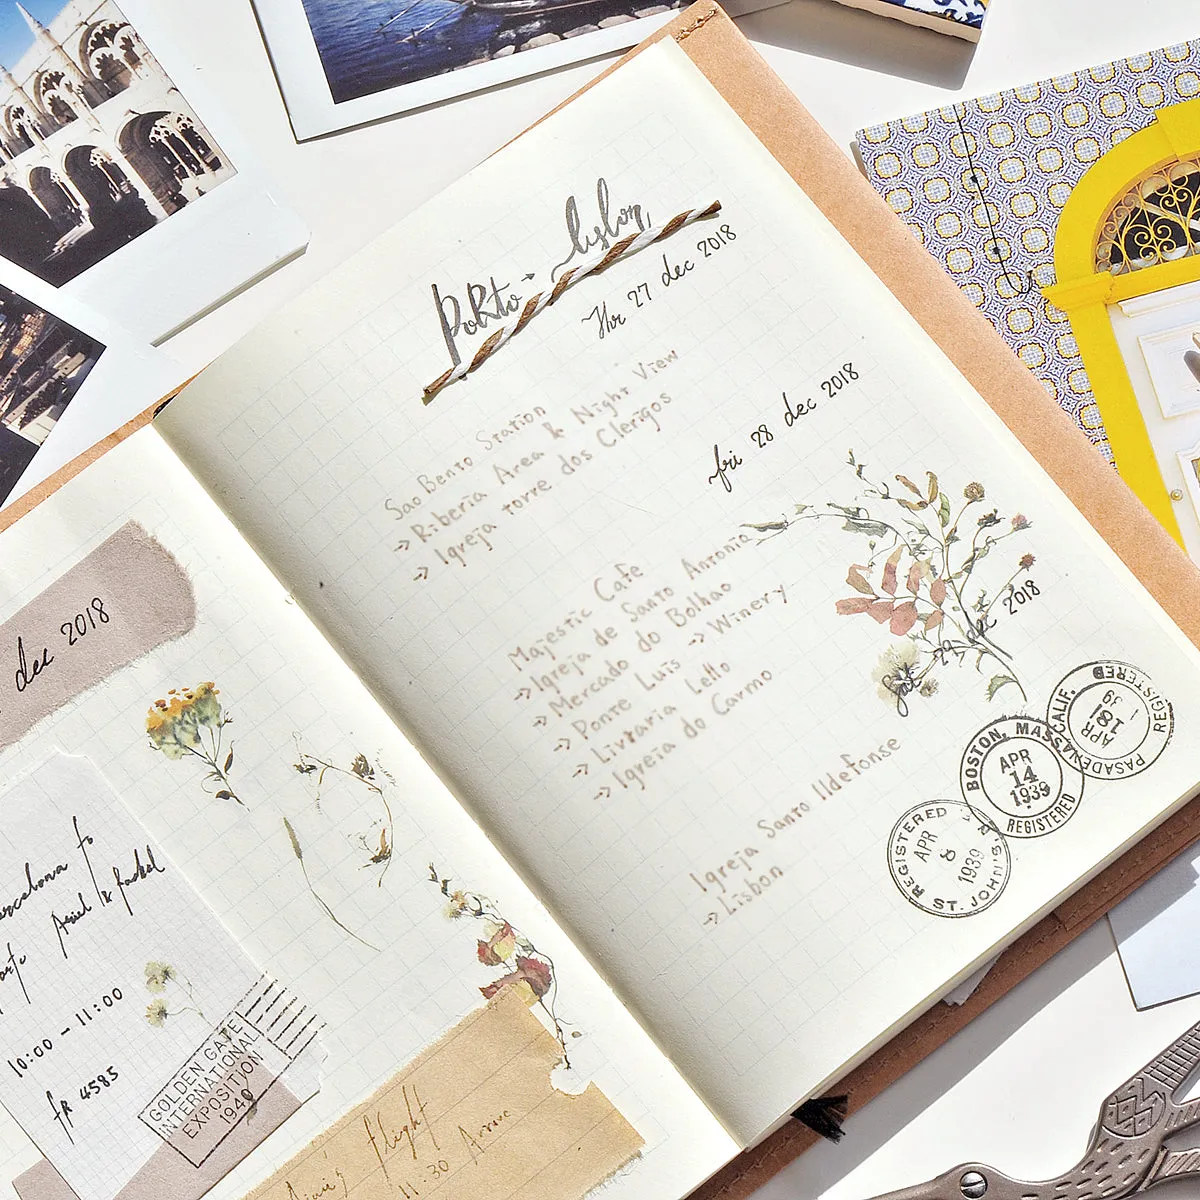 dec 2018
to
Ariel & Rachel
10:00 - 11:00
FR 4585
GOLDEN GATE
INTERNATIONAL
EXPOSITION
flight
11:30 Arrive
Porto - Lisbon
Thr 27 dec 2018
Sao Bento Station
→ Riberia Area & Night View
→ Igreja torre dos Clerigos
fri 28 dec 2018
Majestic Cafe
→ Igreja de Santo Antonia
→ Mercado do Bolhao
→ Ponte Luis → Winery
→ Livraria Lello
→ Igreja do Carmo
Sat 29 dec 2018
Igreja Santo Ildefonse
→ Lisbon
REGISTERED
APR 8 1939
ST. JOHN'S,
BOSTON, MASS.
APR
14
1939
REGISTERED
PASADENA CALIF.
APR 18
REGISTERED